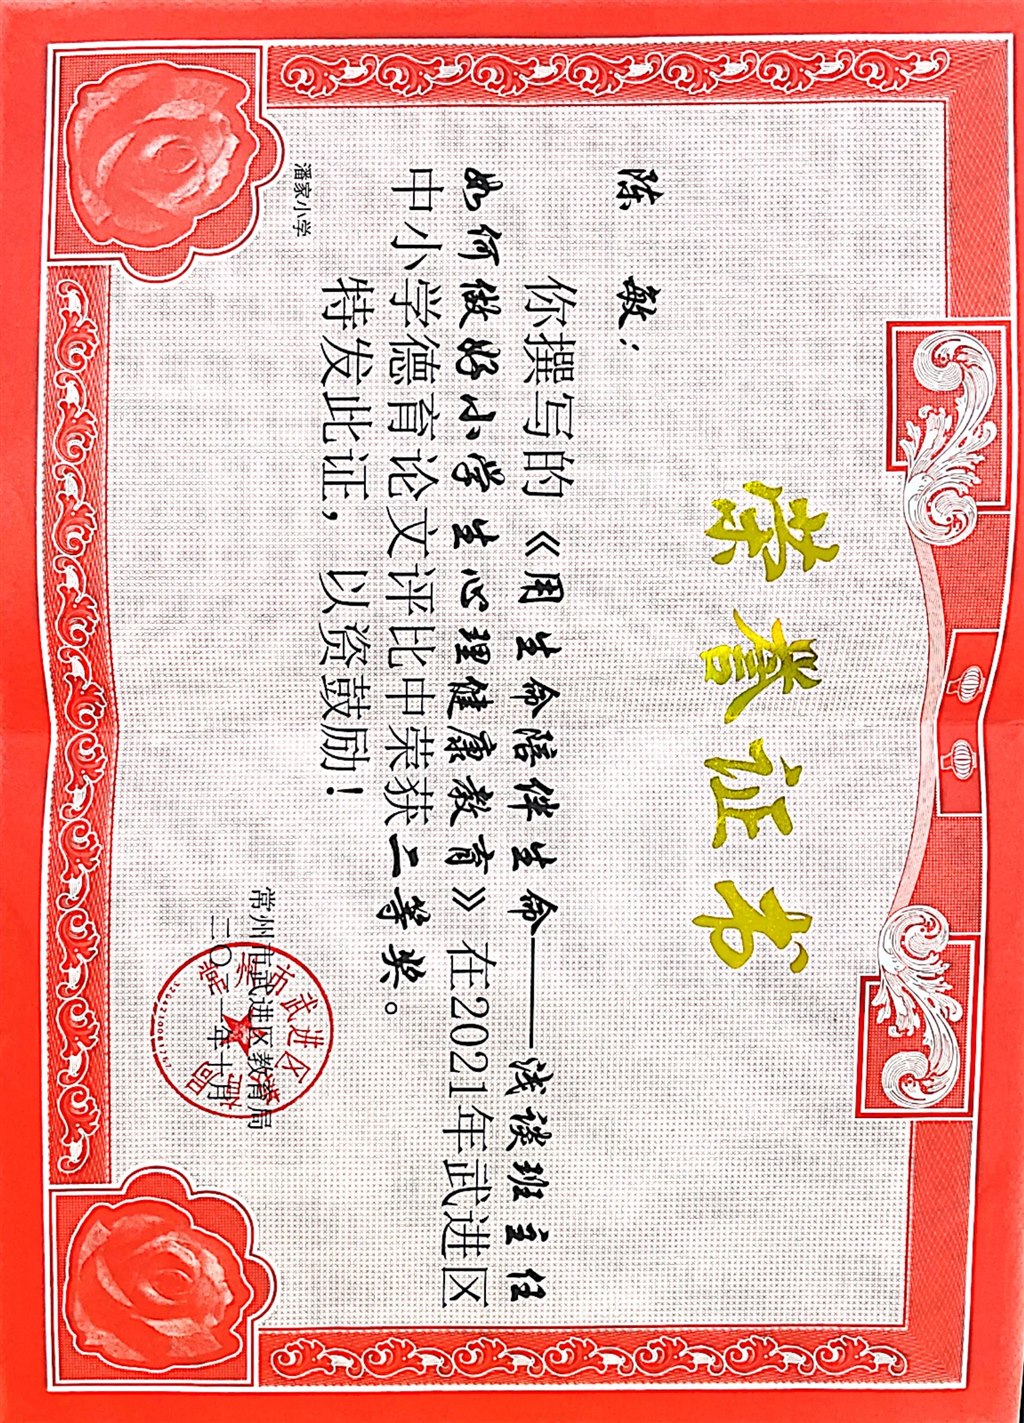 荣誉证书
陈敏：
你撰写的《用生命陪伴生命——浅谈班主任
如何做好小学生心理健康教育》在2021年武进区
中小学德育论文评比中荣获二等奖。
特发此证，以资鼓励！
潘家小学
常州市武进区教育局
二〇二一年十月